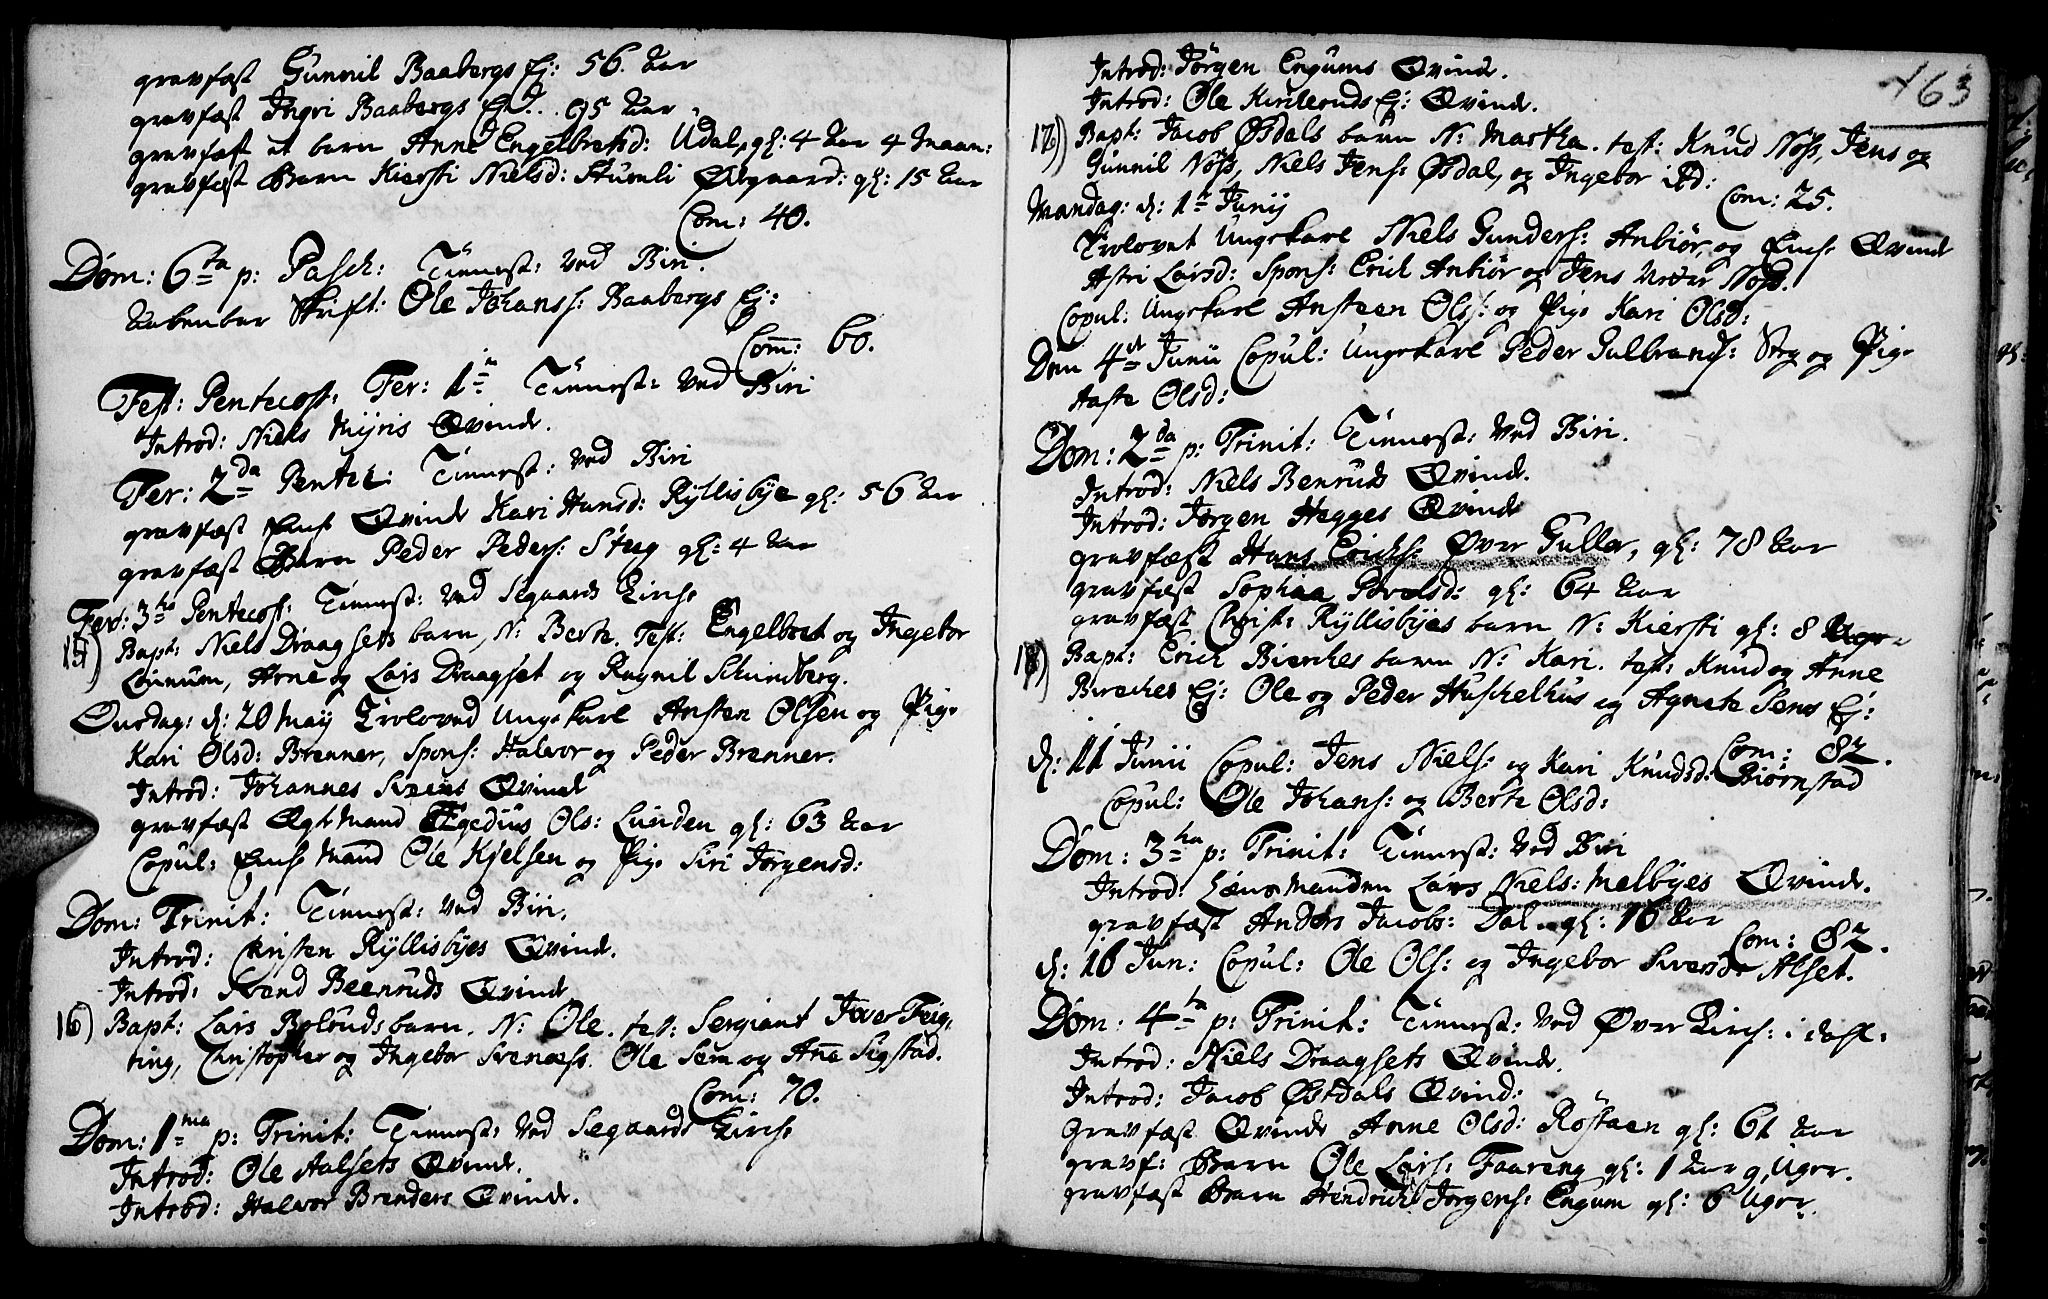 gravfæst Gunnil Baabergs Ej: 56. Aar
gravfæst Ingri Baabergs Ej. 95 Aar
gravfæst et barn Anne Engelbretsd: Udal, gl: 4 Aar 4 Maan:
gravfæst Barn Kiersti Nielsd: gl: 15 Aar
Com: 40.
Dom: 6ta p: Pasch: Tienest: ved Biri.
Aabenbar Skrift: Ole Johanss: Baabergs Ej:
Com: 60.
Fest: Pentecost: Fer: 1a Tienest: ved Biri
Introd: Niels Myris Qvinde.
Fer: 2da Pentec: Tienest: ved Biri
gravfæst Enke Qvinde Kari Hansd: Ryllisbye gl: 56 Aar
gravfæst Barn Peder Peders: Steg gl: 4 Aar
Fer: 3tia Pentecost: Tienest: ved Segaards Kirke
15) Bapt: Niels Draagsets barn, N: Berte. Test: Engelbret og Ingebor
Lunum, Arne og Lars Draagset og Ragnil Schundberg.
Onsdag: d: 20 Maij Troloved Ungekarl Ansten Olsen og Pige
Kari Olsd: Brenner, Spons: Halvor og Peder Brenner.
Introd: Johannes Qvinde
gravfæst Ægte Mand Egedius Ols: Lunden gl: 63 Aar
Copul: Enke Mand Ole Kjelsen og Pige Siri Jørgensd:
Dom: Trinit: Tienest: ved Biri.
Introd: Christen Ryllisbyes Qvinde.
Introd: Svend Beenruds Qvinde
16) Bapt: Lars Bøluds barn. N: Ole. test: Sergiant Iver Feig-
ting, Christopher og Ingebor Svenæss. Ole Sem og Aña Sigstad.
Com: 70.
Dom: 1ma p: Trinit: Tienest: ved Segaards Kirke
Introd: Ole Aalsets Qvinde.
Introd: Halvor Brenders Qvinde.
163
Introd: Jörgen Engums Qvinde.
Introd: Ole Kirkeruds Ej: Qvinde.
17) Bapt: Jacob Øsdals barn N: Martha. test: Knud Nöss, Jens og
Gunnil Nöss, Niels Jens: Øsdal, og Ingebor ibd:
Com: 25.
Mandag: d: 1te Junij
Trolovet Ungekarl Niels Gunders: Anbiör, og Enke Qvinde
Astri Larsd: Spons: Erich Anbiör og Jens Nöss.
Copul: Ungekarl Ansteen Ols: og Pige Kari Olsd:
Den 4de Junii Copul: Ungekarl Peder Gulbrands: Steg og Pige
Aaste Olsd:
Dom: 2da p: Trinit: Tienest: ved Biri.
Introd: Niels Benruds Qvinde.
Introd: Jørgen Hegges Qvinde
gravfæst Hans Erichs: Øvre Guller, gl: 78 Aar
gravfæst Sophia Povelsd: gl: 64 Aar
gravfæst Christ: Ryllisbyes barn N: Kiersti gl: 8 Uger
18) Bapt: Erich Bierches barn N: Kari. test: Knud og Anne
Birches Ej: Ole og Peder Huschelhus og Agnete Sems Ej:
Com: 82.
d: 11 Junii Copul: Jens Niels: og Kari Knudsd: Biørnstad
Copul: Ole Johans: og Berte Olsd:
Dom: 3tia p: Trinit: Tienest: ved Biri
Introd: Lænsmanden Lars Niels: Melbyes Qvinde.
gravfæst Anders Jacobs: Dal. gl: 16 Aar
Com: 82.
d: 16 Jun: Copul: Ole Ols: og Ingebor Siversd: Alset.
Dom: 4ta p: Trinit: Tienest: ved Øvre Kirch: i
Introd: Niels Draagsets Qvinde.
Introd: Jacob Østdals Qvinde:
Gravfæst Qvinde Anne Olsd: Röstaen gl: 61 Aar
gravf: Barn Ole Lars: Faareng gl: 1 Aar 9 Uger.
gravfæst Barn Hendrich Jørgens: Engum gl: 6 Uger.